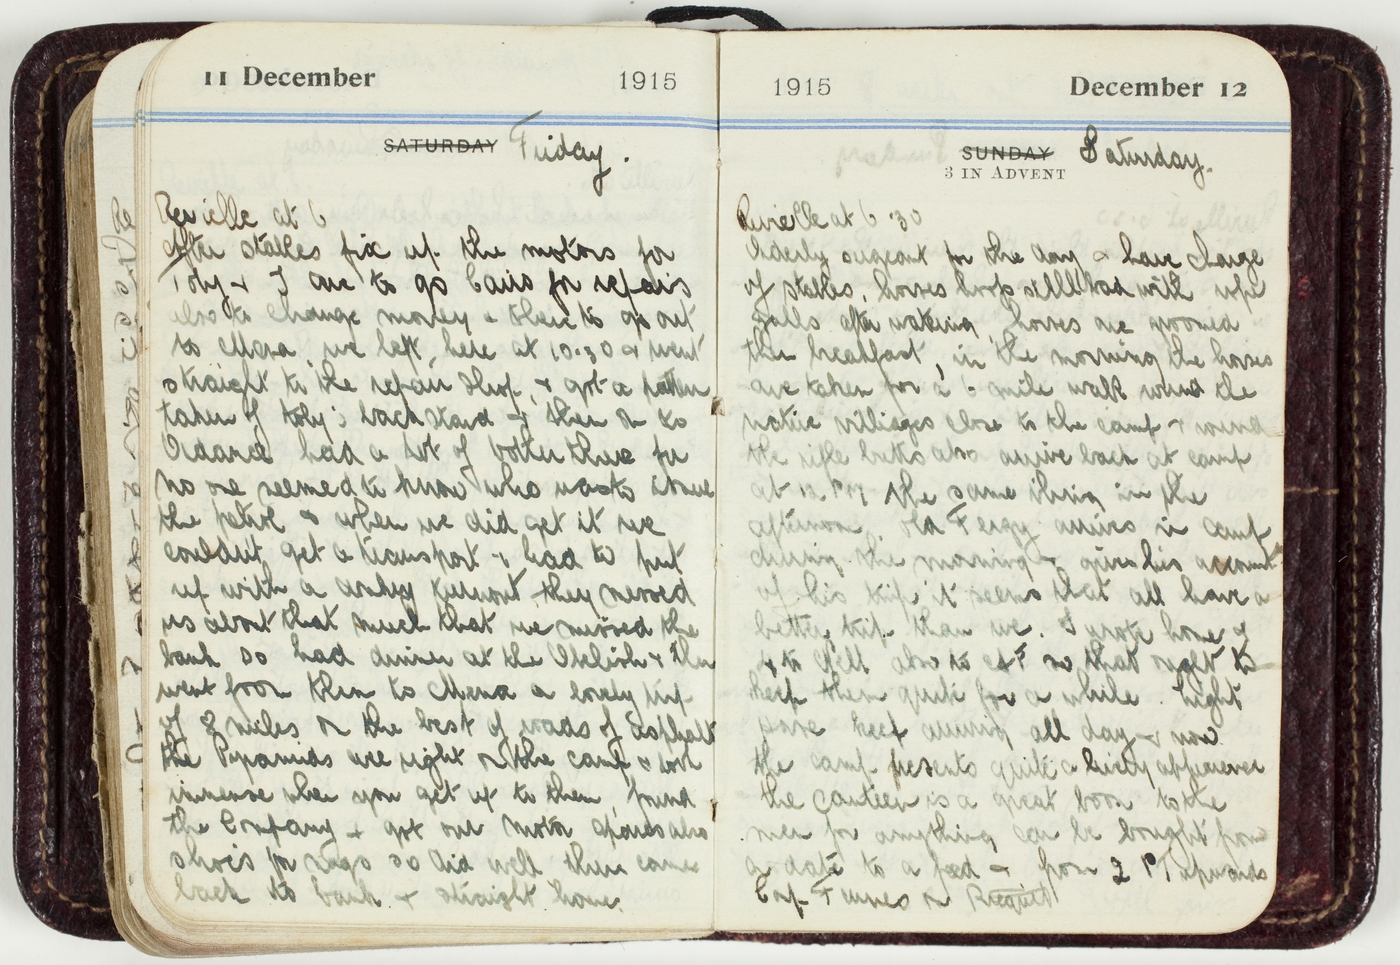 11 December 1915
SATURDAY Friday.
Reveille at 6
After stables fix up the motors for
Toby & I are to go Cairo for repairs
also to change money & then to go out
to Mena, we left here at 10.30 & went
straight to the repair shop, & got a pattern
taken of toby's back stand & then on to
Ordance had a lot of bother there for
no one seemed to know who was to issue
the petrol & when we did get it we
couldnt get a transport & had to put
up with a donkey turnout, they messed
us about that much that we missed the
bank so had dinner at the & then
went from then to Mena a lovely trip
of 8 miles on the best of roads of Asphalt
the Pyramids are right on the camp & look
immense when you get up to them, found
the Company & got our motor spares also
shoes for nags so did well then came
back to bank & straight home.
1915 December 12
SUNDAY Saturday.
3 IN ADVENT
Revielle at 6.30
Orderly sergeant for the day & have charge
of stables, horses with rope
galls after watering horses are groomed
then breakfast, in the morning the horses
are taken for a 6 mile walk round the
native villiages close to the camp & round
the rifle butts also arrive back at camp
at the same thing in the
afternoon. Old Fergy arrives in camp
during the morning & gives his account
of his trip it seems that all have a
better trip than we. I wrote home &
& to also to so that ought to
keep them quiet for a while. Light
horse keep arriving all day & now
the camp presents quite a lively appearance
the canteen is a great boon to the
men for anything can be bought from
a date to a feed & from 2 PT upwards
Corp F on Picquett